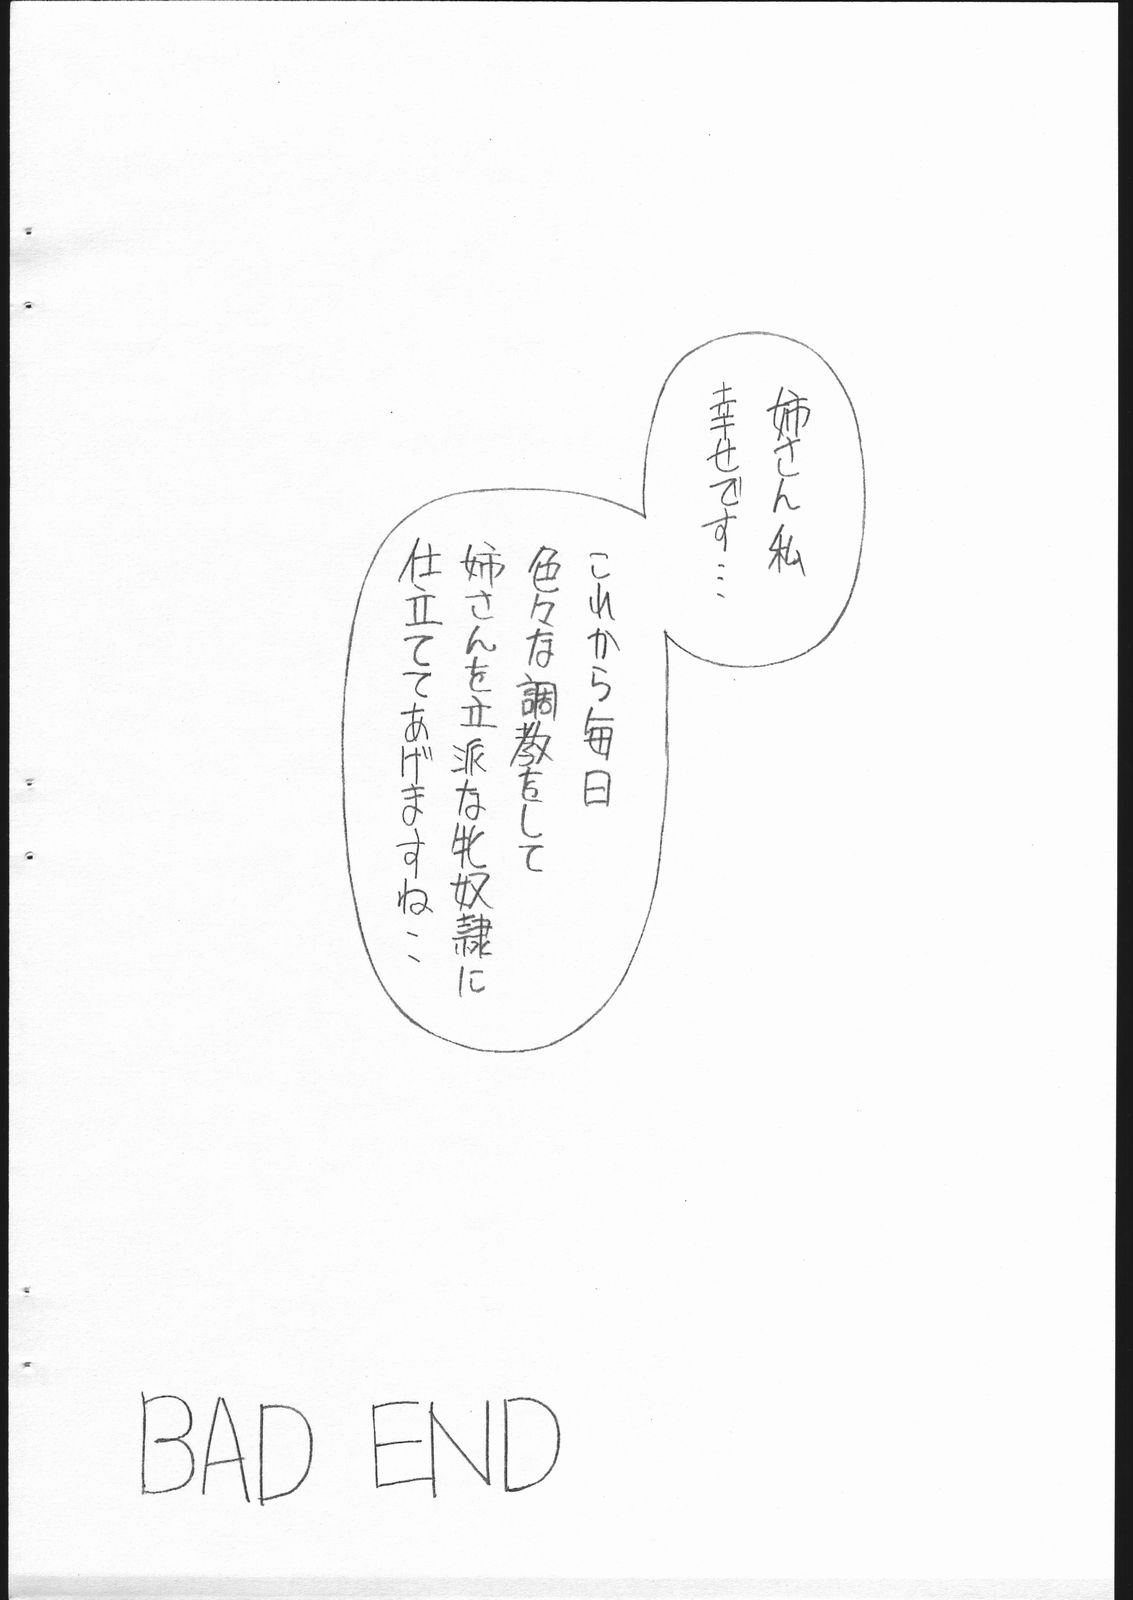 姉さん私
幸せです…
これから毎日
色々な調教をして
姉さんを立派な牝奴隷に
仕立ててあげますね…
BAD END